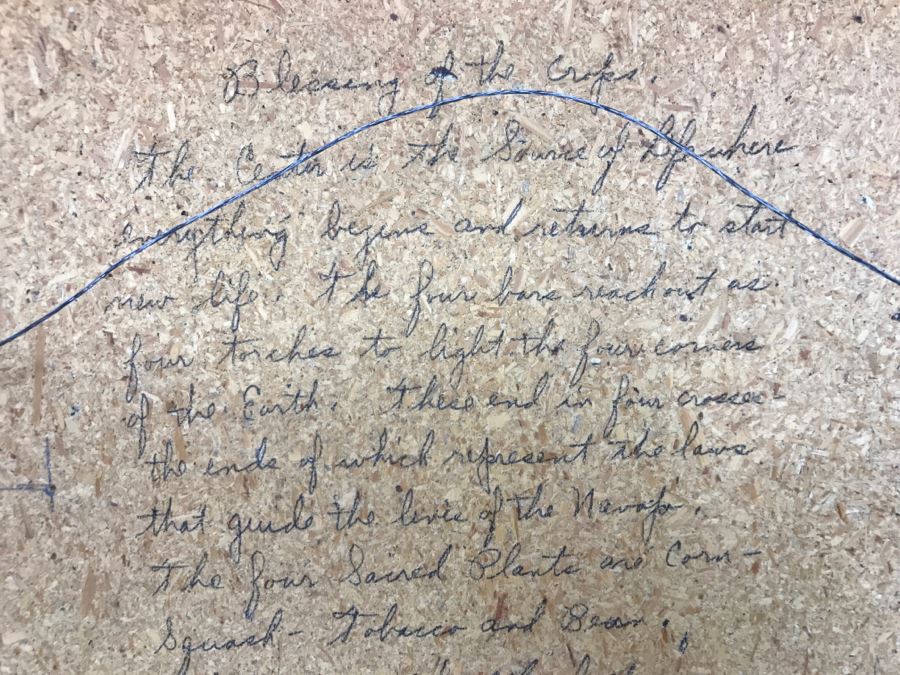 Blessing of the Crops.
The Center is the Source of Life where
everything begins and returns to start
new life. The four bars reach out as
four torches to light the four corners
of the Earth. These end in four crosses -
the ends of which represent the laws
that guide the lives of the Navajo.
The four Sacred Plants are Corn -
Squash - Tobacco and Bean.